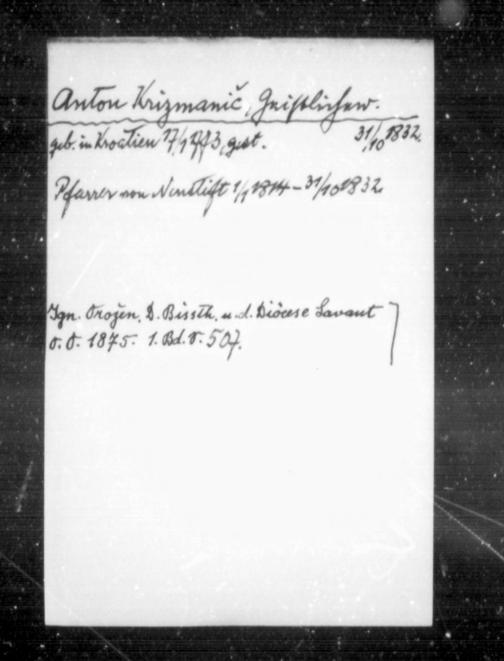 Anton Krizmanič, Geistlicher.
geb. in Kroatien 17/1 1773, gest. 31/10 1832.
Pfarrer von Neustift 1/1 1814 – 31/10 1832.
Ign. Orožen, D. Bissth. u. d. Diöcese Lavant
1875. 1. Bd. S. 507.